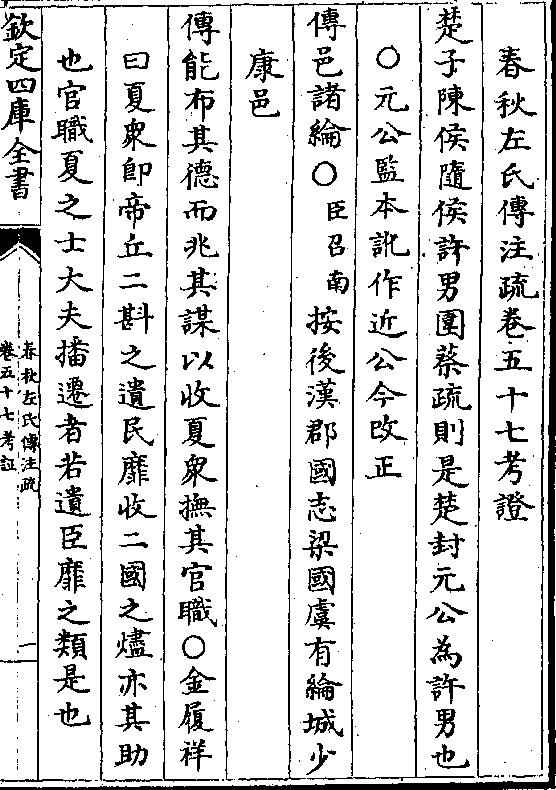 春秋左氏傳注疏卷五十七考證
楚子陳侯隨侯許男圍蔡疏則是楚封元公為許男也
○元公監本訛作近公今改正
傳邑諸綸○臣召南按後漢郡國志梁國虞有綸城少
康邑
傳能布其德而兆其謀以收夏衆撫其官職○金履祥
曰夏衆卽帝丘二斟之遺民靡收二國之燼亦其助
也官職夏之士大夫播遷者若遺臣靡之類是也
欽定四庫全書
春秋左氏傳注疏
卷五十七考證
一